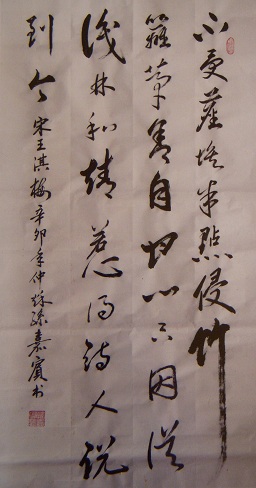 不受塵埃半點侵竹
籬茅舍自甘心只因誤
識林和靖惹得詩人說
到今
宋王淇梅辛卯年仲秋孫嘉賓书